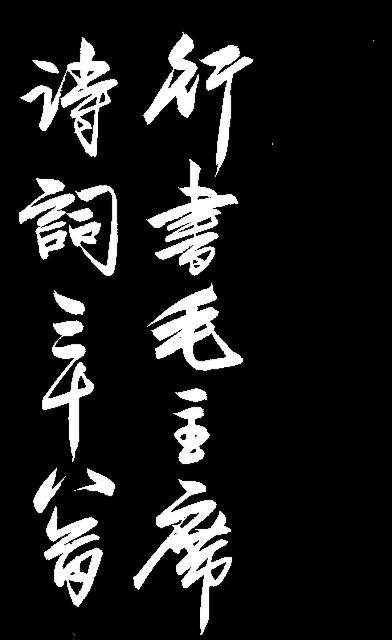 行書毛主席
詩詞三十八首